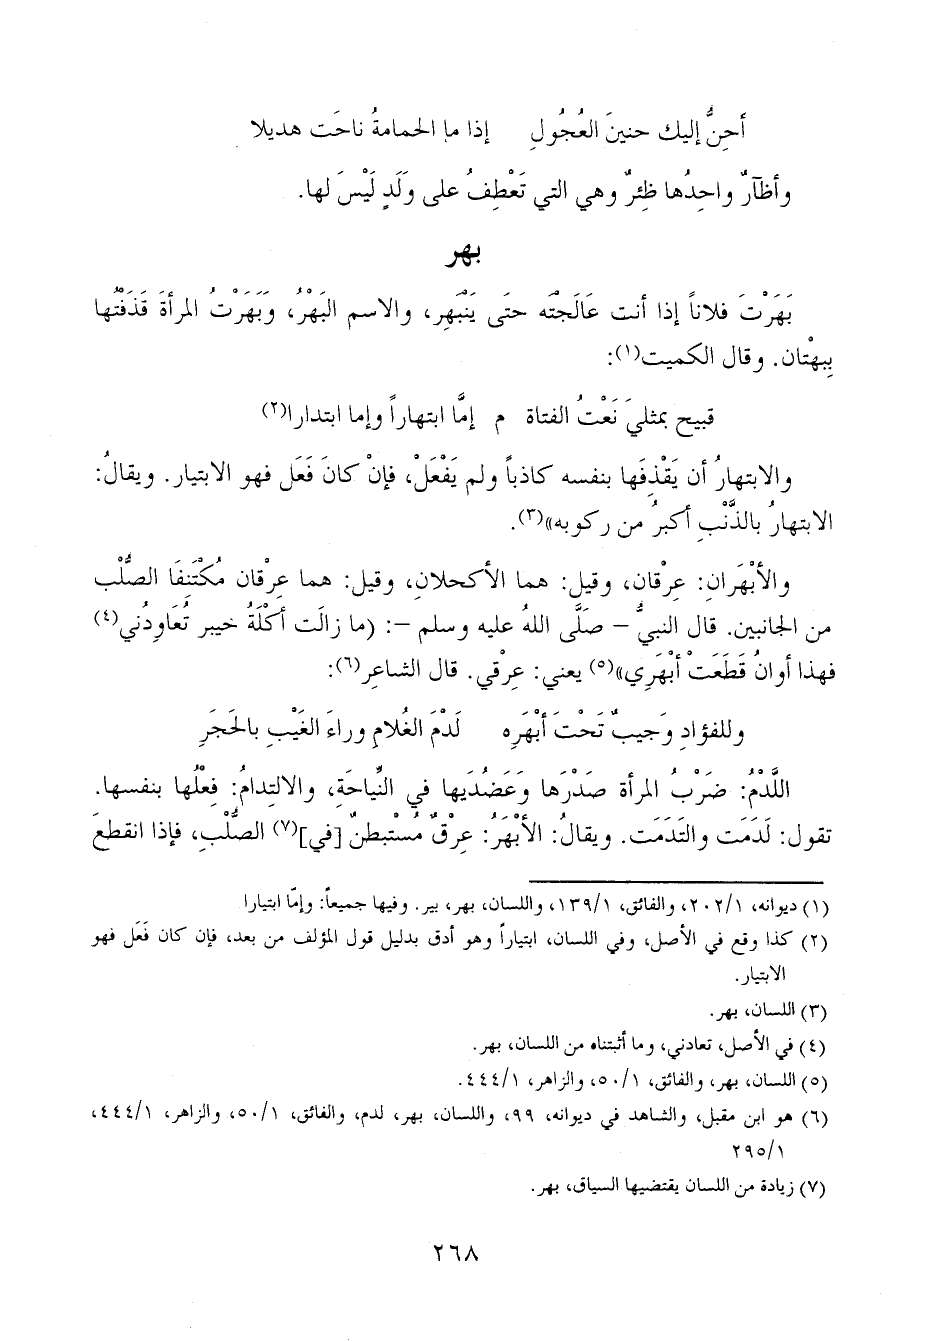 أَحِنُّ إليك حنينَ العُجُولِ إذا ما الحمامةُ ناحَت هديلا
وأظآرٌ واحِدُها ظِئرٌ وهي التي تَعْطِفُ على وَلَدٍ لَيْسَ لها.
بهر
بَهَرْتَ فلاناً إذا أنت عَالَجْتَه حتى يَنْبَهِر، والاسم البَهْرُ، وَبَهَرْتُ المرأةَ قَذَفْتُها
بِبهْتان. وقال الكميت(١):
قبيح بمثليَ نَعْتُ الفتاة م إمَّا ابتهاراً وإما ابتدارا(٢)
والابتهارُ أن يَقْذِفَها بنفسه كاذباً ولم يَفْعَلْ، فإنْ كانَ فَعَل فهو الابتيار. ويقالُ:
الابتهارُ بالذَّنْبِ أكبرُ من ركوبه»(٣).
والأَبْهَرانِ: عِرْقان، وقيل: هما الأكحلانِ، وقيل: هما عِرْقان مُكْتَنِفَا الصُّلْب
من الجانبين. قال النبيُّ – صَلَّى اللهُ عليه وسلم –: (ما زالَت أكْلَةُ خيبر تُعَاوِدُني(٤)
فهذا أوانُ قَطَعَتْ أَبْهَرِي»(٥) يعني: عِرْقي. قال الشاعِر(٦):
وللفؤادِ وَجيبٌ تَحْتَ أَبْهَرِه لَدْمَ الغُلامِ وراءَ الغَيْبِ بالحَجَرِ
اللَّدْمُ: ضَرْبُ المرأة صَدْرَها وَعَضُدَيها في النِّياحَةِ، والالتِدامُ: فِعْلها بنفسها.
تقول: لَدَمَت والتَدَمَت. ويقالُ: الأَبْهَرُ: عِرْقٌ مُسْتبطنٌ [في](٧) الصُّلْبِ، فإذا انقطعَ
(١) ديوانه، ٢٠٢/١، والفائق، ١٣٩/١، واللسان، بهر، بير. وفيها جميعاً: وإمّا ابتيارا
(٢) كذا وقع في الأصل، وفي اللسان، ابتياراً وهو أدق بدليل قول المؤلف من بعد، فإن كان فَعَل فهو
الابتيار.
(٣) اللسان، بهر.
(٤) في الأصل، تعادني، وما أثبتناه من اللسان، بهر.
(٥) اللسان، بهر، والفائق، ٥٠/١، والزاهر، ٤٤٤/١.
(٦) هو ابن مقبل، والشاهد في ديوانه، ٩٩، واللسان، بهر، لدم، والفائق، ٥٠/١، والزاهر، ٤٤٤/١،
٢٩٥/١
(٧) زيادة من اللسان يقتضيها السياق، بهر.
٢٦٨